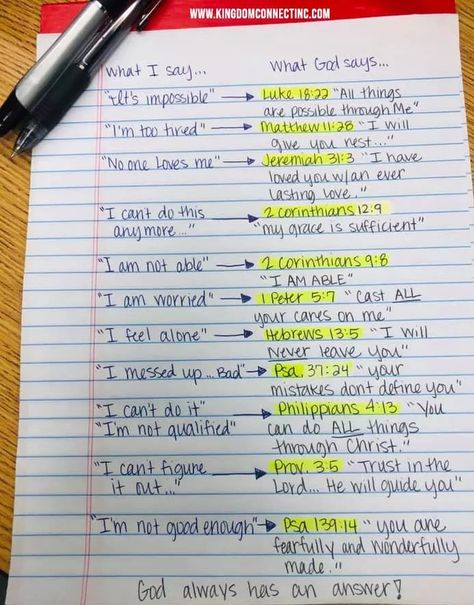 WWW.KINGDOMCONNECTINC.COM
What I say... What God says...
"It's impossible" → Luke 18:22 "All things
are possible through Me"
"I'm too tired" → Matthew 11:28 "I will
give you rest..."
"No one loves me" → Jeremiah 31:3 "I have
loved you w/an ever
lasting love."
"I can't do this → 2 Corinthians 12:9
anymore..." "my grace is sufficient"
"I am not able" → 2 Corinthians 9:8
"I AM ABLE"
"I am worried" → 1 Peter 5:7 "Cast ALL
your cares on me"
"I feel alone" → Hebrews 13:5 "I will
Never leave you"
"I messed up... Bad" → Psa. 37:24 "your
mistakes dont define you"
"I can't do it" → Philippians 4:13 "You
"I'm not qualified" can do ALL things
through Christ."
"I can't figure → Prov. 3:5 "Trust in the
it out..." Lord... He will guide you"
"I'm not good enough" → Psa 139:14 "you are
fearfully and wonderfully
made."
God always has an answer!